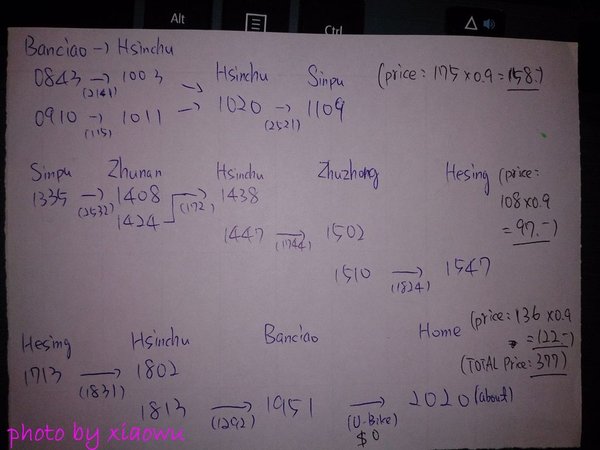 Alt
Ctrl
Banciao → Hsinchu
0843 → 1003 → Hsinchu Sinpu (price: 175×0.9 = 158.-)
(2141)
0910 → 1011 → 1020 → 1109
(115) (2521)
Sinpu Zhunan Hsinchu Zhuzhong Hesing (price:
1335 → 1408 → 1438 108×0.9
(2532) 1424 (172) = 97.-)
1447 → 1502
(1744)
1510 → 1547
(1824)
Hesing Hsinchu Banciao Home (price: 136×0.9
1713 → 1802 = 122.-)
(1831) (TOTAL Price: 377)
1813 → 1951 → 2020 (about)
(1292) (U-Bike)
$0
photo by xiaowu